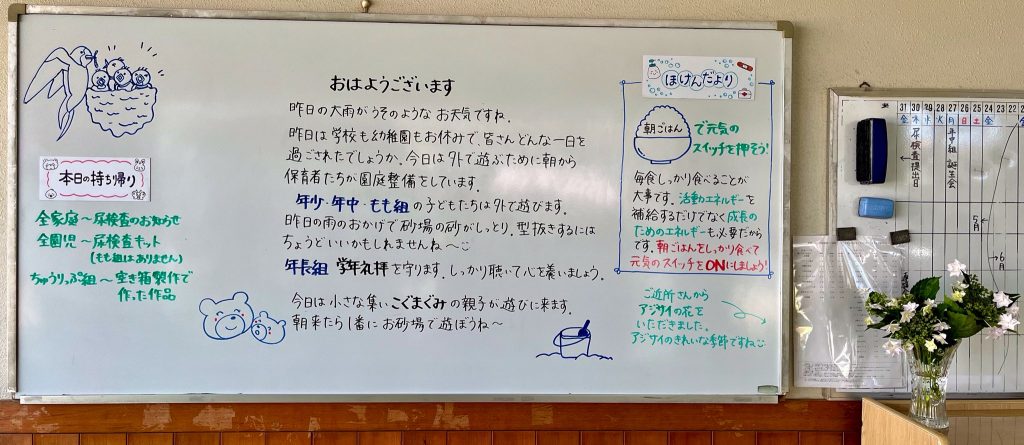 おはようございます
昨日の大雨がうそのようなお天気ですね。
昨日は学校も幼稚園もお休みで、皆さんどんな一日を
過ごされたでしょうか。今日は外で遊ぶために朝から
保育者たちが園庭整備をしています。
年少・年中・もも組の子どもたちは外で遊びます。
昨日の雨のおかげで砂場の砂がしっとり。型抜きするには
ちょうどいいかもしれませんね〜
年長組 学年礼拝を守ります。しっかり聴いて心を養いましょう。
今日は小さな集い こぐまぐみの親子が遊びに来ます。
朝来たら1番にお砂場で遊ぼうね〜
本日の持ち帰り
全家庭〜尿検査のお知らせ
全園児〜尿検査キット
(もも組はありません)
ちゅうりっぷ組〜空き箱製作で
作った作品
ほけんだより
朝ごはん
で元気の
スイッチを押そう!
毎食しっかり食べることが
大事です。活動エネルギーを
補給するだけでなく成長の
ためのエネルギーも必要だから
です。朝ごはんをしっかり食べて
元気のスイッチをONにしましょう!
ご近所さんから
アジサイの花を
いただきました。
アジサイのきれいな季節ですね
31 30 29 28 27 26 25 24 23
金 木 水 火 月 日 土 金
尿検査提出日
年中組 誕生会
5月
6月